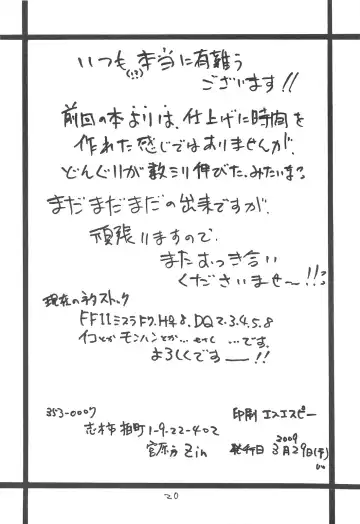 いつも(!?)本当に有難う
ございます!!
前回の本よりは、仕上げに時間を
作れた感じではありませんが
どんぐりが数ミリ伸びた、みたいな?
まだまだまだの出来ですが、
頑張りますので、
またおつき合い
くださいませ〜!!
現在のネタストック
FF11ミスラ
DQ2.3.4.5.8
モンハンとか…etc …です。
よろしくです――!!
353-0007
志木市柏町1-9-22-402
菅原方 Zin
印刷 エスエスピー
発行日 2009 3月29日
20